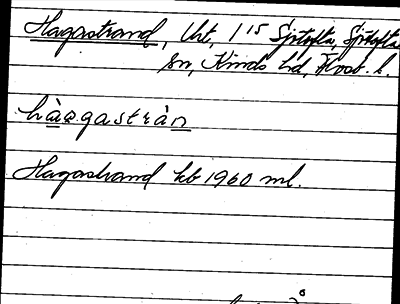 Hagastrand, lht, 1¹⁵ Sjötofta, Sjötofta
sn, Kinds hd, Älvsb. l.
hàɑgastràn
Hagastrand kb 1960 ml.